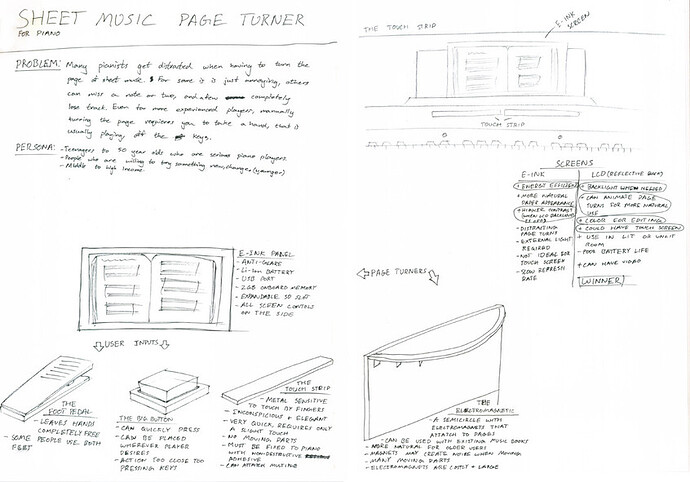 SHEET MUSIC PAGE TURNER
FOR PIANO
PROBLEM: Many pianists get distracted when having to turn the
page of sheet music. For some it is just annoying, others
can miss a note or two, and a few completely
lose track. Even for more experienced players, manually
turning the page requires you to take a hand, that is
usually playing, off the keys.
PERSONA: - Teenagers to 50 year olds who are serious piano players.
- People who are willing to try something new, change, (younger)
- Middle to high income.
E-INK PANEL
- ANTI-GLARE
- Li-ion BATTERY
- USB PORT
- 2GB ONBOARD MEMORY
- EXPANDABLE SD SLOT
- ALL SCREEN CONTROLS
ON THE SIDE
USER INPUTS
THE
FOOT PEDAL
- LEAVES HANDS
COMPLETELY FREE
- SOME PEOPLE USE BOTH
FEET
THE BIG BUTTON
- CAN QUICKLY PRESS
- CAN BE PLACED
WHEREVER PLAYER
DESIRES
- ACTION TOO CLOSE TOO
PRESSING KEYS
THE
TOUCH STRIP
- METAL SENSITIVE
TO TOUCH BY FINGERS
- INCONSPICIOUS + ELEGANT
- VERY QUICK, REQUIRES ONLY
A SLIGHT TOUCH
- NO MOVING PARTS
- MUST BE FIXED TO PIANO
WITH NON-DESTRUCTIVE
ADHESIVE
- CAN ATTACH
THE TOUCH STRIP
E-INK
SCREEN
TOUCH STRIP
SCREENS
E-INK
+ ENERGY EFFICIENT
+ MORE NATURAL
PAPER APPEARANCE
+ HIGHER CONTRAST
- DISTRACTING
PAGE TURNS
- EXTERNAL LIGHT
REQUIRED
- NOT IDEAL FOR
TOUCH SCREEN
- SLOW REFRESH
RATE
LCD (REFLECTIVE BACK)
+ BACKLIGHT WHEN NEEDED
+ CAN ANIMATE PAGE
TURNS FOR MORE NATURAL
USE
+ COLOR FOR EDITING
+ COULD HAVE TOUCH SCREEN
+ USE IN LIT OR UNLIT
ROOM
- POOR BATTERY LIFE
+ CAN HAVE VIDEO
WINNER
PAGE TURNERS
THE
ELECTROMAGNETIC
- A SEMICIRCLE WITH
ELECTROMAGNETS THAT
ATTACH TO PAGES
- CAN BE USED WITH EXISTING MUSIC BOOKS
- MORE NATURAL FOR OLDER USERS
- MAGNETS MAY CREATE NOISE WHEN MOVING
- MANY MOVING PARTS
- ELECTROMAGNETS ARE COSTLY + LARGE